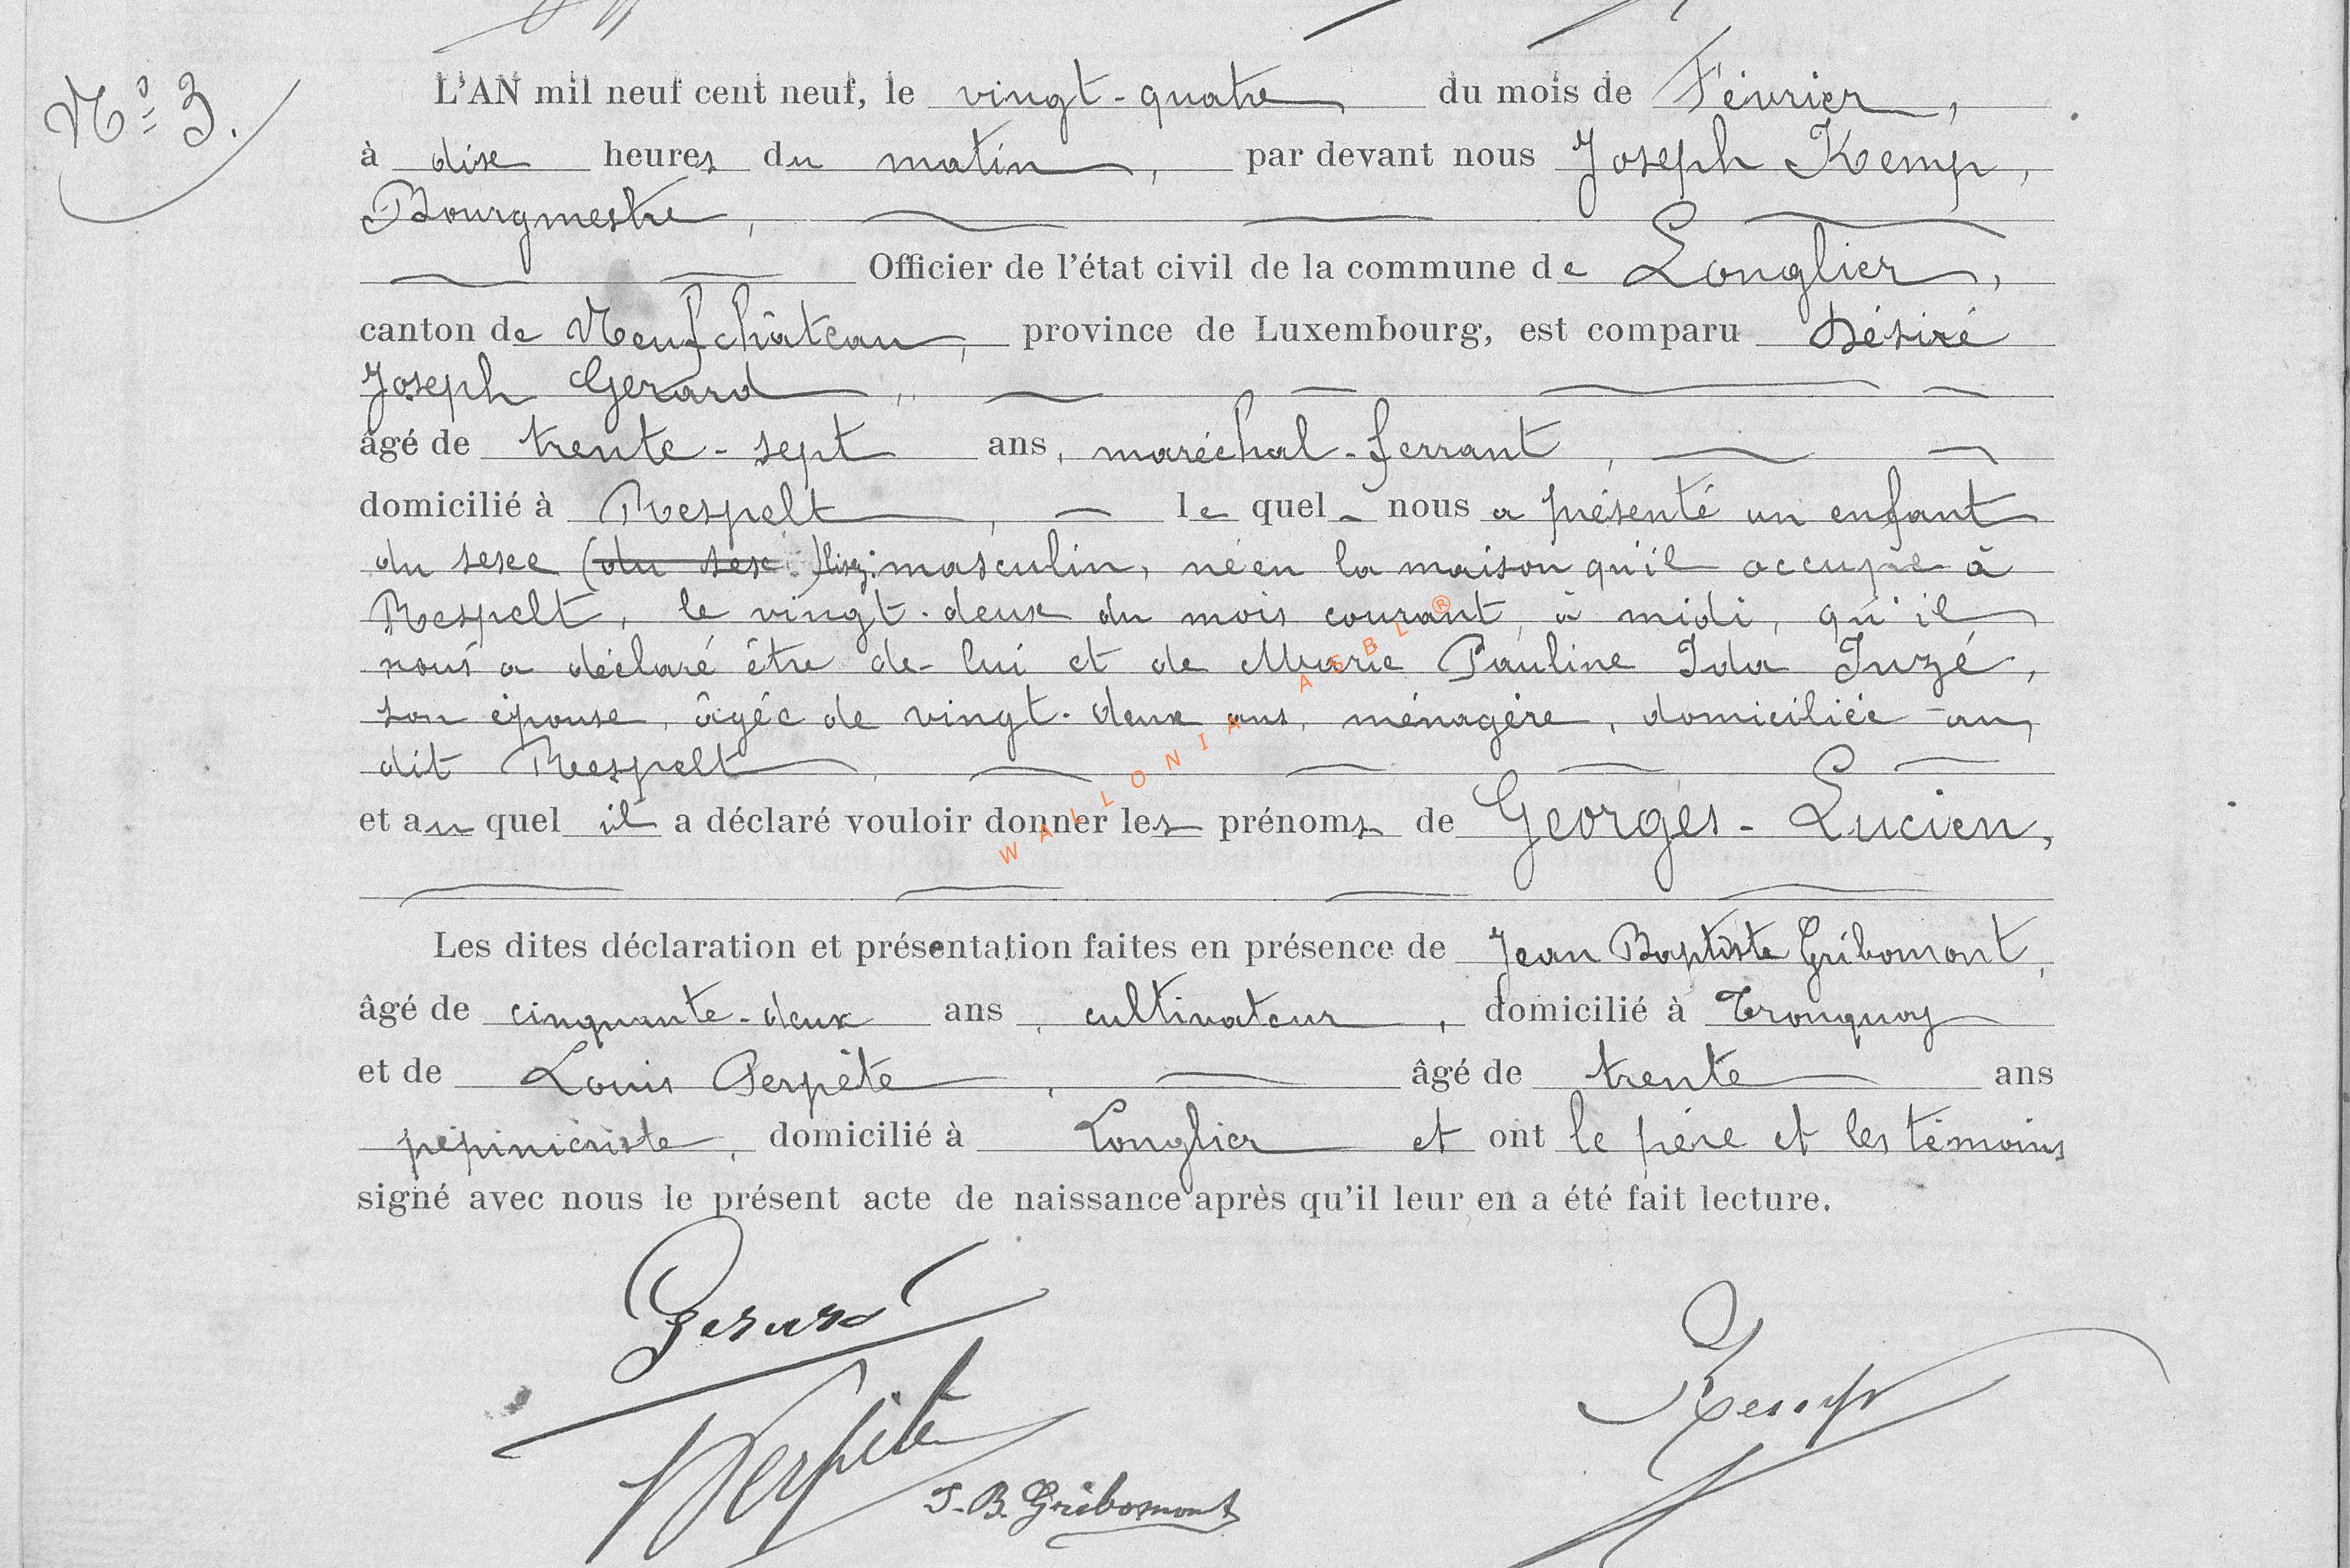 N° 3.
L'AN mil neuf cent neuf, le vingt-quatre du mois de Février,
à dix heures du matin, par devant nous Joseph Kemp,
Bourgmestre,
Officier de l'état civil de la commune de Longlier,
canton de Neufchâteau, province de Luxembourg, est comparu Désiré
Joseph Gerard,
âgé de trente-sept ans, maréchal-ferrant,
domicilié à Respelt, le quel nous a présenté un enfant
du sexe (du sexe) lisez: masculin, né en la maison qu'il occupe à
Respelt, le vingt-deux du mois courant, à midi, qu'il
nous a déclaré être de lui et de Marie Pauline Ida Juzé,
son épouse, âgée de vingt-deux ans, ménagère, domiciliée au
dit Respelt,
et au quel il a déclaré vouloir donner les prénoms de Georges-Lucien,
Les dites déclaration et présentation faites en présence de Jean Baptiste Gribomont,
âgé de cinquante-deux ans, cultivateur, domicilié à Tronquoy
et de Louis Perpète, âgé de trente ans
pépiniériste, domicilié à Longlier et ont le père et les témoins
signé avec nous le présent acte de naissance après qu'il leur en a été fait lecture.
Gerard
Kemp
Perpète
J.-B. Gribomont
WALLONIA ASBL ®